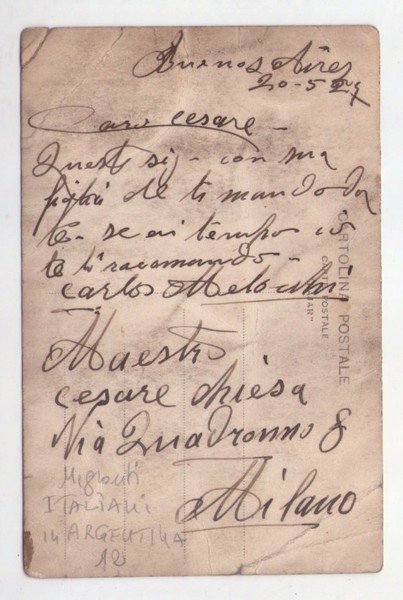 Buenos Aires
20-5 27
Caro Cesare -
Questo sig - con sua
figlia che ti mando da
te - se ai tempo
te ti racomando -
Carlos
Maestro
Cesare Chiesa
Via Quadronno 8
Milano
Migranti
ITALIANI
in ARGENTINA
12
CARTOLINA POSTALE
POSTALE